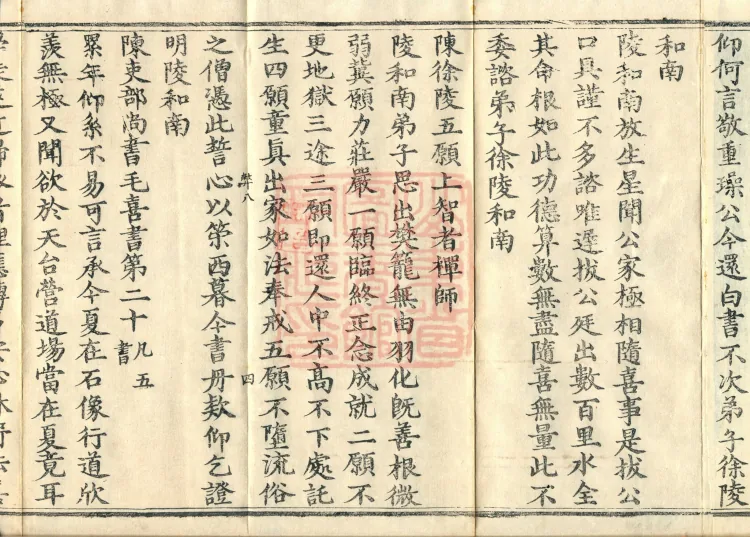 仰何言敬重璪公今還白書不次弟子徐陵
和南
陵和南放生星聞公家極相隨喜事是拔公
口具謹不多諮唯遲拔公廷出數百里水全
其命根如此功德筭數無盡隨喜無量此不
委諮弟子徐陵和南
陳徐陵五願上智者禪師
陵和南弟子思出樊籠無由羽化既善根微
弱冀願力莊嚴一願臨終正念成就二願不
更地獄三途三願即還人中不高不下處託
生四願童眞出家如法奉戒五願不墮流俗
弊八 四
之僧憑此誓心以策西暮今書丹欵仰乞證
明陵和南
陳吏部尚書毛喜書第二十凡五書
累年仰系不易可言承今夏在石像行道欣
羨無極又聞欲於天台營道場當在夏竟耳